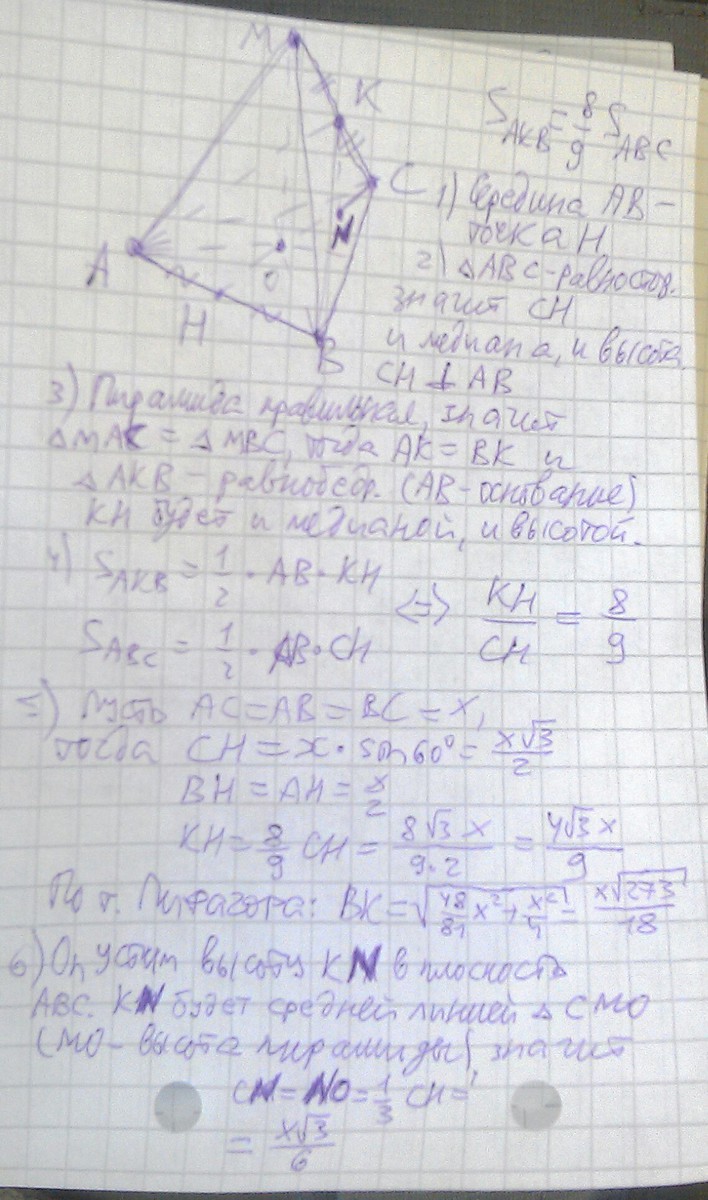 M
K
C
N
O
A
H
B
S_AKB = 8/9 S_ABC
1) Середина AB –
точка H
2) △ABC – равностор.
значит CH
и медиана, и высота
CH ⊥ AB
3) Пирамида правильная, значит
△MAC = △MBC, тогда AK = BK и
△AKB – равнобедр. (AB – основание)
KH будет и медианой, и высотой.
4) S_AKB = 1/2 · AB · KH
S_ABC = 1/2 · AB · CH
<=> KH/CH = 8/9
5) Пусть AC = AB = BC = x,
тогда CH = x · sin60° = x√3/2
BH = AH = x/2
KH = 8/9 CH = 8√3 x/9·2 = 4√3 x/9
По т. Пифагора: BK = √(48/81 x² + x²/4) = x√273/18
6) Опустим высоту KN в плоскость
ABC. KN будет средней линией △ CMO
(MO – высота пирамиды), значит
CN = NO = 1/3 CH =
= x√3/6